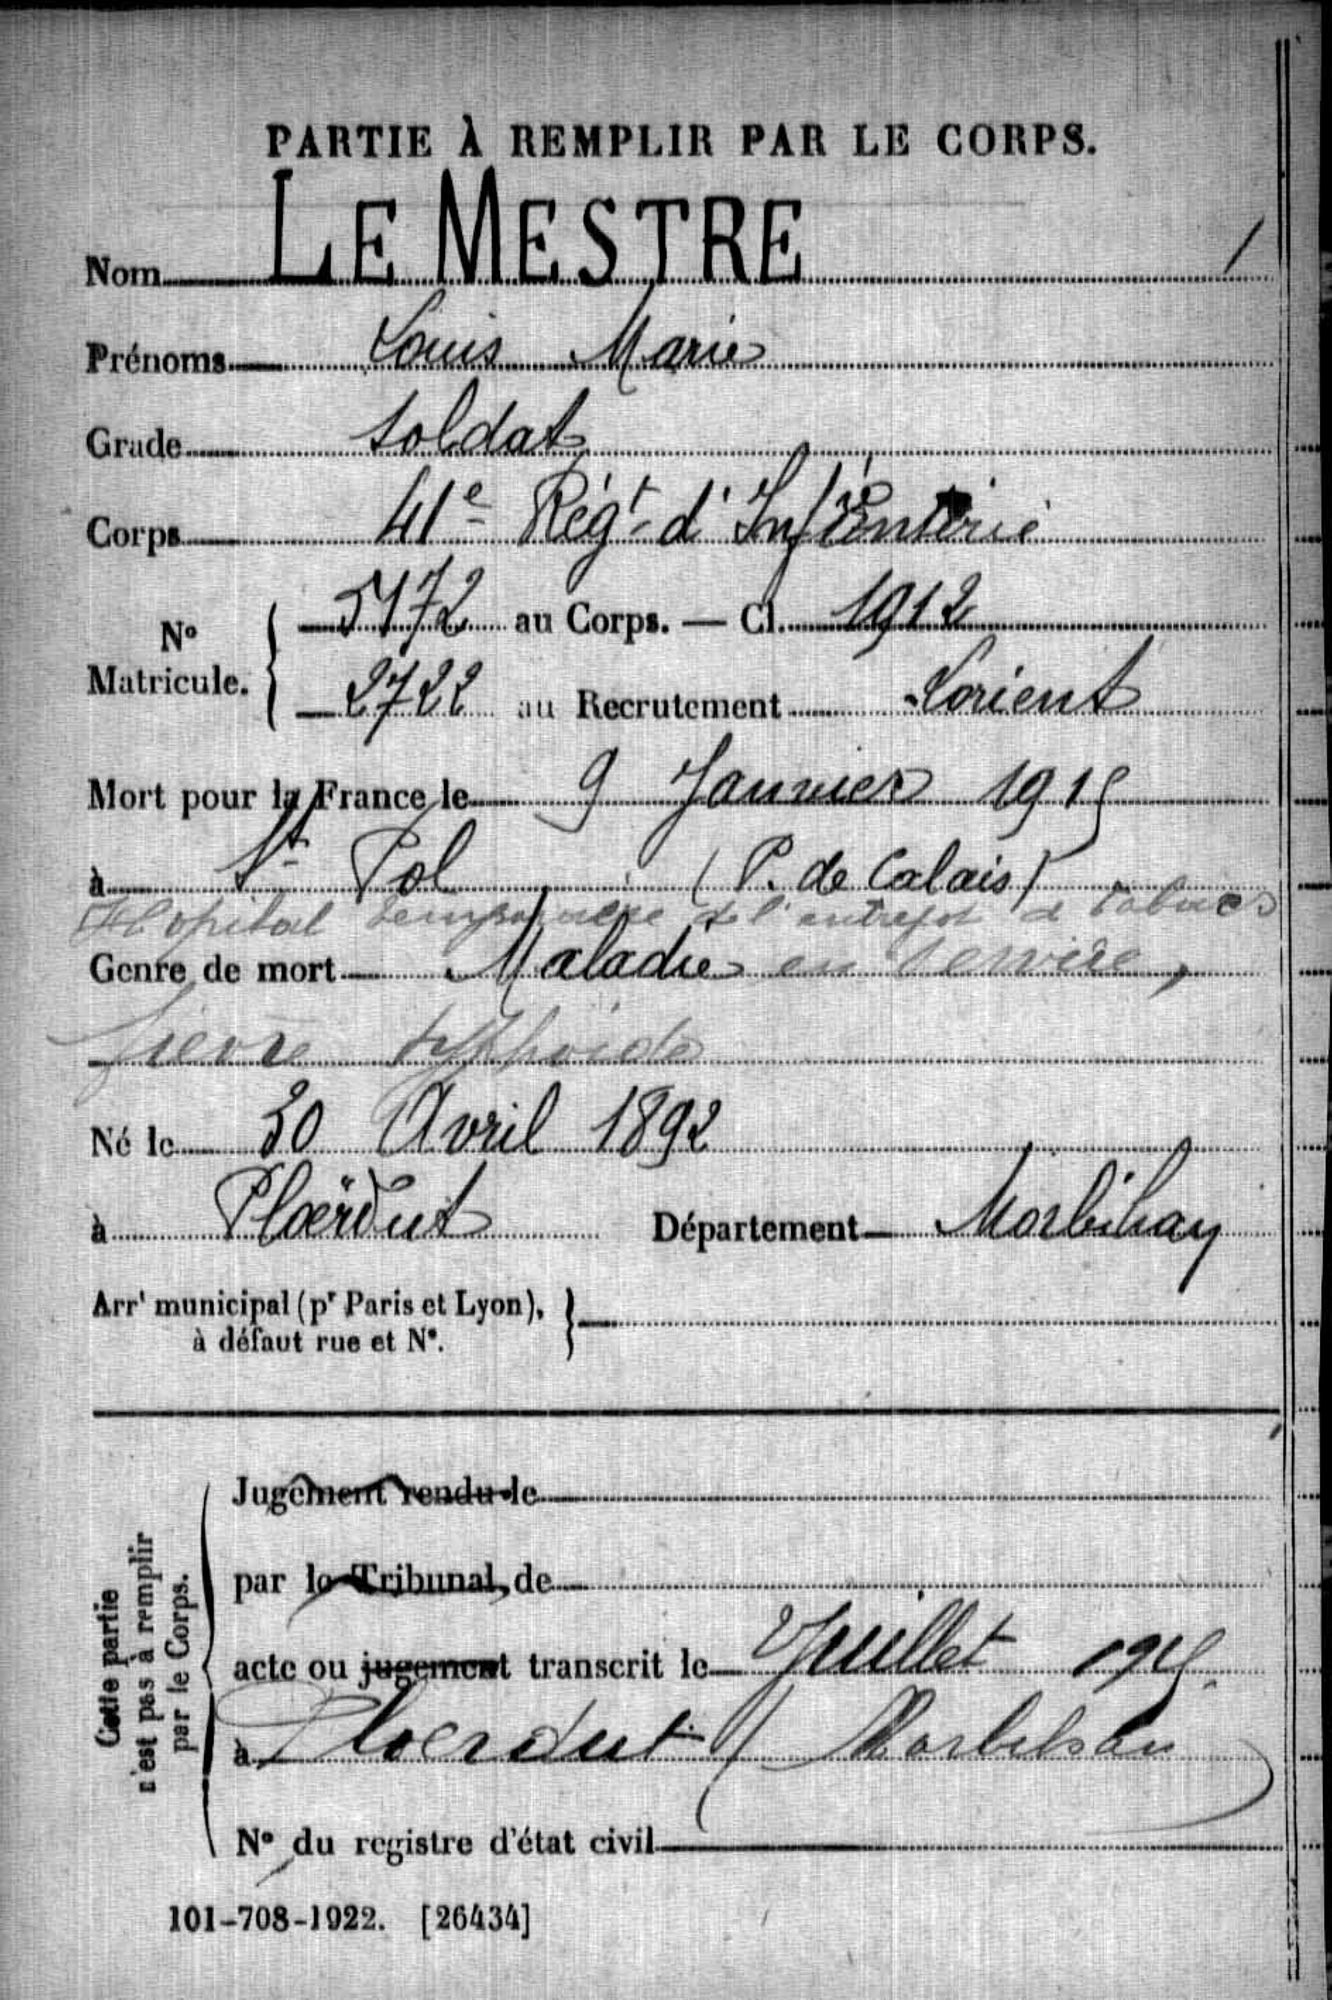 PARTIE À REMPLIR PAR LE CORPS.
Nom LE MESTRE
Prénoms Louis Marie
Grade soldat
Corps 41e Régt d'Infanterie
N° Matricule. 5172 au Corps. — Cl. 1912
2722 au Recrutement Lorient
Mort pour la France le 9 Janvier 1915
à St Pol (P. de Calais)
Hopital temporaire de l'entrepot d tabacs
Genre de mort Maladie en service,
fievre typhoide
Né le 30 Avril 1892
à Ploërdut Département Morbihan
Arrt municipal (pr Paris et Lyon),
à défaut rue et N°.
Cette partie
n'est pas à remplir
par le Corps.
Jugement rendu le
par le Tribunal de
acte ou jugement transcrit le Juillet 1915.
à Ploerdut (Morbihan)
N° du registre d'état civil
101-708-1922. [26434]